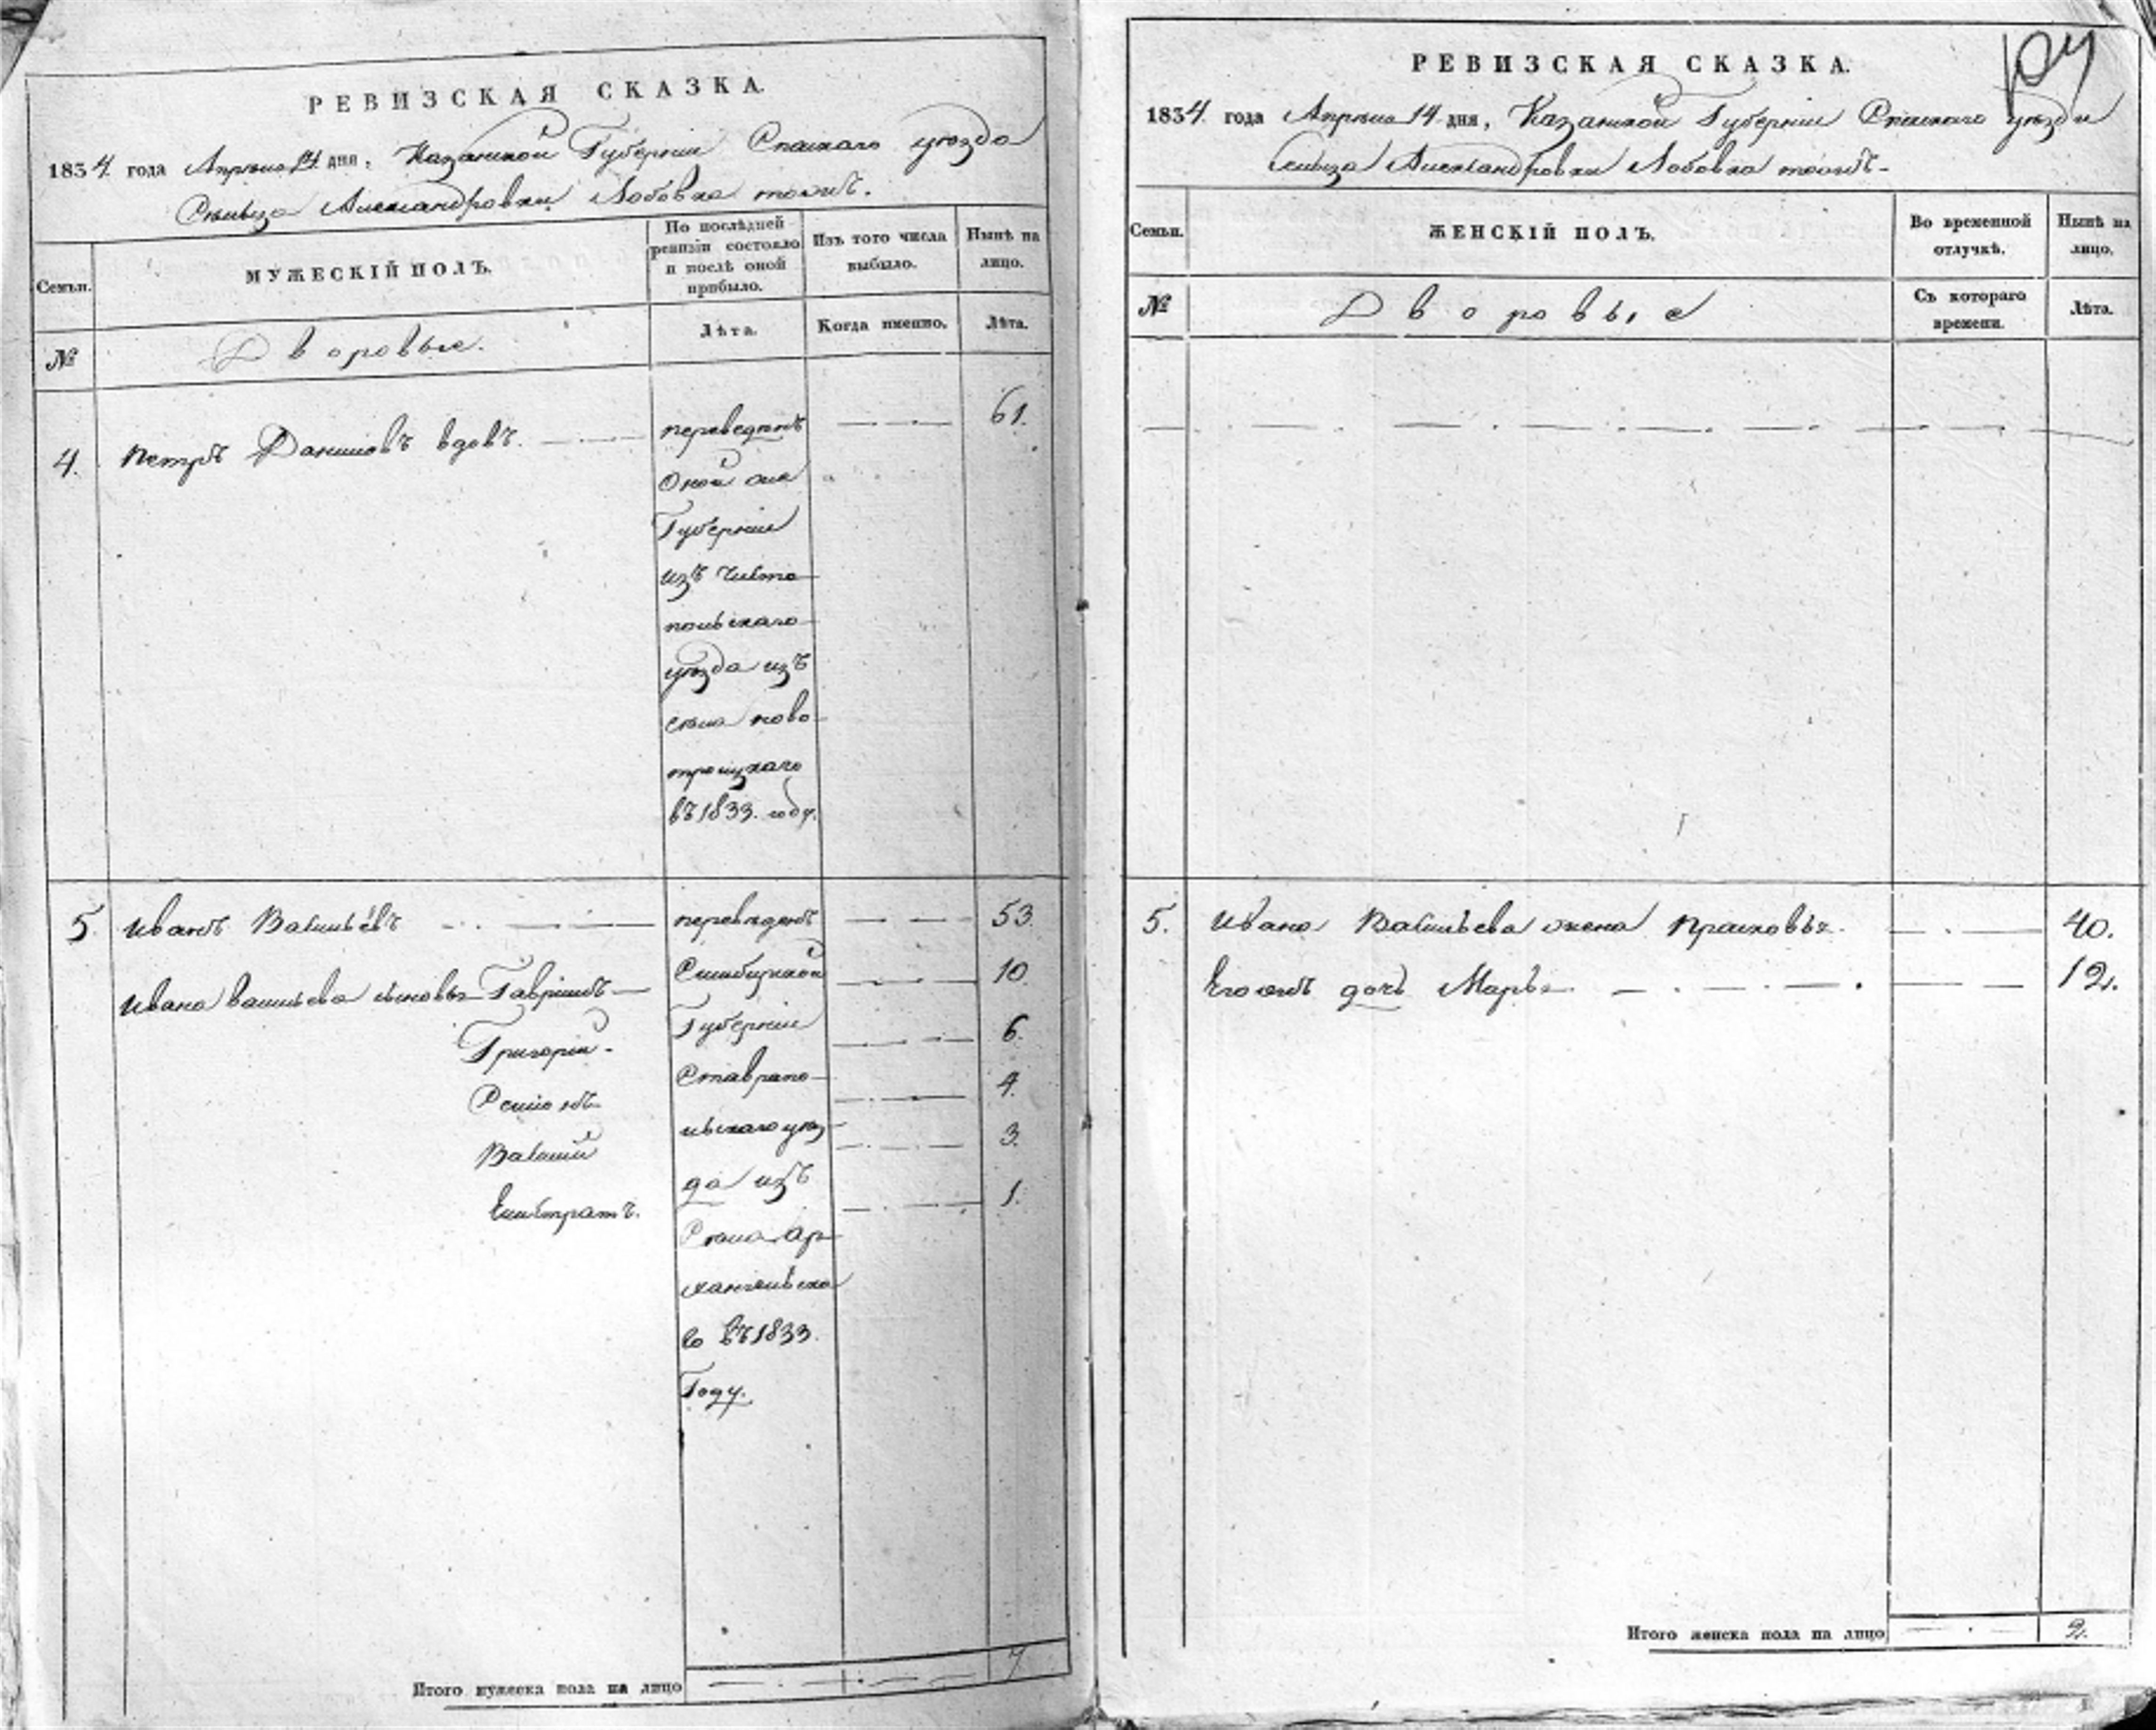 РЕВИЗСКАЯ СКАЗКА.
1834. года Апреля 14 дня, Казанской Губернии Спаскаго уезда
Сельца Александровки Лобовка тожъ.
Семьи.
МУЖЕСКІЙ ПОЛЪ.
По послѣдней ревизіи состояло и послѣ оной прибыло.
Изъ того числа выбыло.
Нынѣ на лицо.
№
Дворовые.
Лѣта.
Когда именно.
Лѣта.
4. Петръ Даниловъ вдовъ. переведенъ 61.
Оной же
Губернии
изъ Чисто
польскаго
уезда изъ
села ново
троицкаго
въ 1833. году.
5. Иванъ Васильевъ переведенъ 53.
Ивана Васильева сыновья Гаврилъ Симбирской 10.
Григорій Губерніи 6.
Семионъ Ставропо 4.
Василий льскаго уез 3.
да изъ
Елистратъ. 1.
Села Ар
хангельска
го въ 1833.
Году.
Итого мужеска пола на лицо 7
РЕВИЗСКАЯ СКАЗКА.
1834. года Апреля 14 дня, Казанской Губернии Спаскаго уезда
Сельца Александровки Лобовка тожъ
Семьи.
ЖЕНСКІЙ ПОЛЪ.
Во временной отлучкѣ.
Нынѣ на лицо.
№
Дворовые
Съ котораго времени.
Лѣта.
5. Ивана Васильева жена Прасковья. 40.
Его жъ дочь Марья 12.
Итого женска пола на лицо 2.